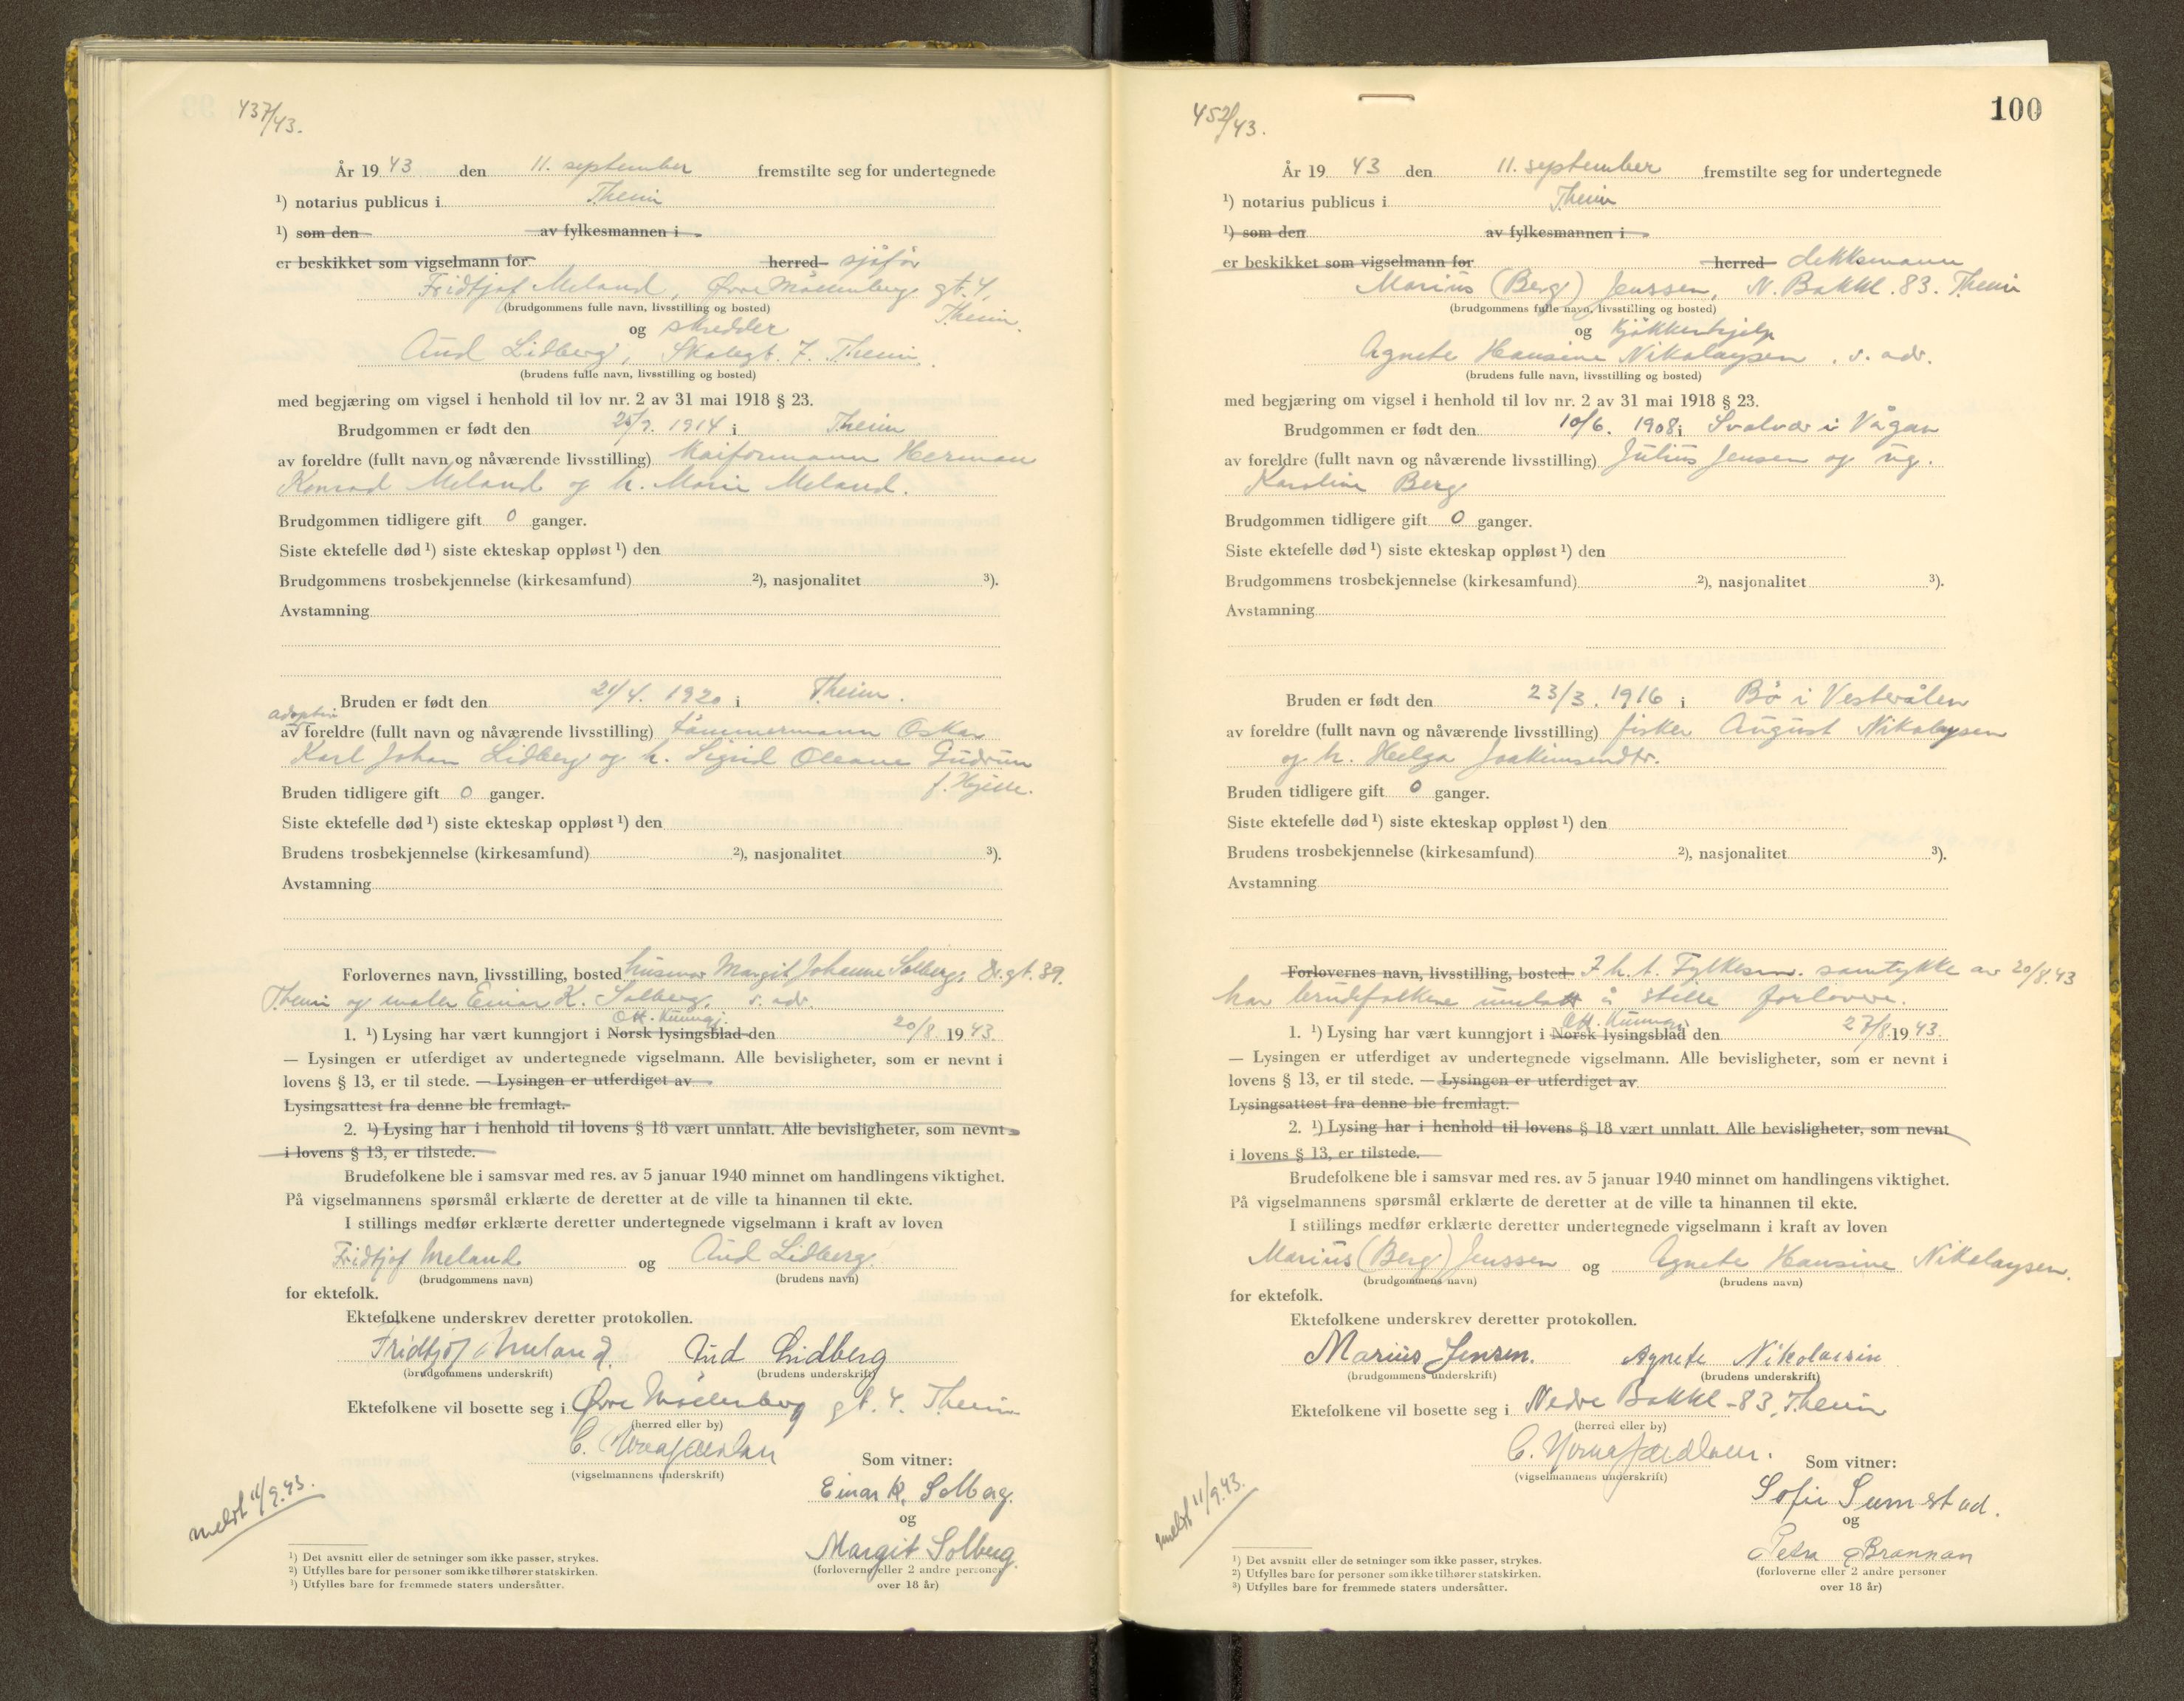 437/43.
År 1943 den 11. september fremstilte seg for undertegnede
¹) notarius publicus i Theim
¹) som den av fylkesmannen i
er beskikket som vigselmann for herred sjåfør
Fridtjof Meland, Øvre Møllenberg gt. 4,
(brudgommens fulle navn, livsstilling og bosted) Theim.
og skredder
Aud Lidberg, Skolegt. 7. Theim.
(brudens fulle navn, livsstilling og bosted)
med begjæring om vigsel i henhold til lov nr. 2 av 31 mai 1918 § 23.
Brudgommen er født den 1914 i Theim
av foreldre (fullt navn og nåværende livsstilling) Kaiformann Herman
Konrad Meland og h. Marie Meland.
Brudgommen tidligere gift 0 ganger.
Siste ektefelle død ¹) siste ekteskap oppløst ¹) den
Brudgommens trosbekjennelse (kirkesamfund) ²), nasjonalitet ³).
Avstamning
Bruden er født den 21/4. 1920 i Theim.
adoptiv
av foreldre (fullt navn og nåværende livsstilling) tømmermann Oskar
Karl Johan Lidberg og h. Sigrid Oleane Gudrun
Bruden tidligere gift 0 ganger. f.
Siste ektefelle død ¹) siste ekteskap oppløst ¹) den
Brudens trosbekjennelse (kirkesamfund) ²), nasjonalitet ³).
Avstamning
Forlovernes navn, livsstilling, bosted husmor Margit Johanne Solberg, gt. 39.
Theim og maler Einar K. Solberg. s. adr.
Off. Kunngj.
1. ¹) Lysing har vært kunngjort i Norsk lysingsblad den 20/8. 1943.
— Lysingen er utferdiget av undertegnede vigselmann. Alle bevisligheter, som er nevnt i
lovens § 13, er til stede. — Lysingen er utferdiget av
Lysingsattest fra denne ble fremlagt.
2. ¹) Lysing har i henhold til lovens § 18 vært unnlatt. Alle bevisligheter, som nevnt
i lovens § 13, er tilstede.
Brudefolkene ble i samsvar med res. av 5 januar 1940 minnet om handlingens viktighet.
På vigselmannens spørsmål erklærte de deretter at de ville ta hinannen til ekte.
I stillings medfør erklærte deretter undertegnede vigselmann i kraft av loven
Fridtjof Meland og Aud Lidberg.
(brudgommens navn) (brudens navn)
for ektefolk.
Ektefolkene underskrev deretter protokollen.
Fridtjof Meland. Aud Lidberg
(brudgommens underskrift) (brudens underskrift)
Ektefolkene vil bosette seg i Øvre Møllenberg gt. 4. Theim
(herred eller by)
C.
(vigselmannens underskrift) Som vitner:
Einar K. Solberg.
og
Margit Solberg.
(forloverne eller 2 andre personer
over 18 år)
meldt 11/9.43.
¹) Det avsnitt eller de setninger som ikke passer, strykes.
²) Utfylles bare for personer som ikke tilhører statskirken.
³) Utfylles bare for fremmede staters undersåtter.
452/43.
100
År 1943 den 11. september fremstilte seg for undertegnede
¹) notarius publicus i Theim
¹) som den av fylkesmannen i
er beskikket som vigselmann for herred dekksmann
Marius (Berg) Jenssen, N. Bakkl. 83. Theim
(brudgommens fulle navn, livsstilling og bosted)
og kjøkkenhjelp
Agnete Hansine Nikolaysen. s. adr.
(brudens fulle navn, livsstilling og bosted)
med begjæring om vigsel i henhold til lov nr. 2 av 31 mai 1918 § 23.
Brudgommen er født den 10/6. 1908 i Svolvær i Vågan
av foreldre (fullt navn og nåværende livsstilling) Julius Jensen og ug.
Karoline Berg
Brudgommen tidligere gift 0 ganger.
Siste ektefelle død ¹) siste ekteskap oppløst ¹) den
Brudgommens trosbekjennelse (kirkesamfund) ²), nasjonalitet ³).
Avstamning
Bruden er født den 23/3. 1916 i Bø i Vesterålen
av foreldre (fullt navn og nåværende livsstilling) fisker August Nikolaysen
og h. Helga Joakimsendtr.
Bruden tidligere gift 0 ganger.
Siste ektefelle død ¹) siste ekteskap oppløst ¹) den
Brudens trosbekjennelse (kirkesamfund) ²), nasjonalitet ³).
Avstamning
Forlovernes navn, livsstilling, bosted I h. t. Fylkesm. samtykke av 20/8.43
har brudefolkene unnlatt å stille forlovere.
Off. Kunngj.
1. ¹) Lysing har vært kunngjort i Norsk lysingsblad den 27/8.1943.
— Lysingen er utferdiget av undertegnede vigselmann. Alle bevisligheter, som er nevnt i
lovens § 13, er til stede. — Lysingen er utferdiget av
Lysingsattest fra denne ble fremlagt.
2. ¹) Lysing har i henhold til lovens § 18 vært unnlatt. Alle bevisligheter, som nevnt
i lovens § 13, er tilstede.
Brudefolkene ble i samsvar med res. av 5 januar 1940 minnet om handlingens viktighet.
På vigselmannens spørsmål erklærte de deretter at de ville ta hinannen til ekte.
I stillings medfør erklærte deretter undertegnede vigselmann i kraft av loven
Marius (Berg) Jenssen og Agnete Hansine Nikolaysen.
(brudgommens navn) (brudens navn)
for ektefolk.
Ektefolkene underskrev deretter protokollen.
Marius Jensen. Agnete Nikolaisen
(brudgommens underskrift) (brudens underskrift)
Ektefolkene vil bosette seg i Nedre Bakkl - 83, Theim
(herred eller by)
C.
(vigselmannens underskrift) Som vitner:
Sofie Sumstad.
og
Petra Brannan
(forloverne eller 2 andre personer
over 18 år)
meldt 11/9.43.
¹) Det avsnitt eller de setninger som ikke passer, strykes.
²) Utfylles bare for personer som ikke tilhører statskirken.
³) Utfylles bare for fremmede staters undersåtter.